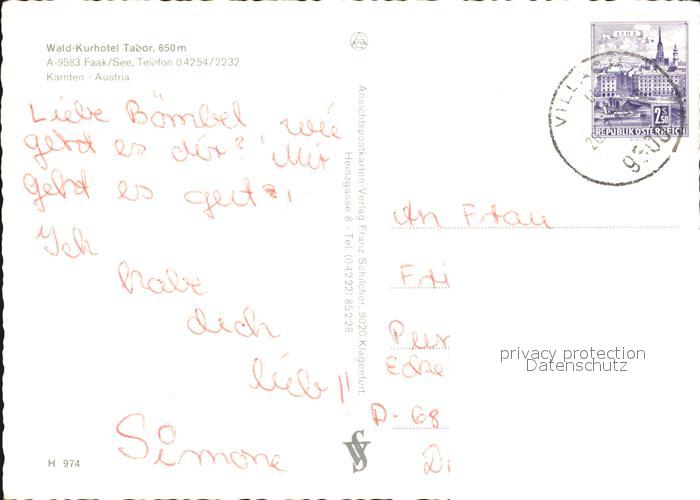 Wald-Kurhotel Tabor, 650 m
A-9583 Faak/See, Telefon 0 42 54 / 2232
Kärnten - Austria
Liebe Bömbel wie
geht es dir? Mir
geht es gut!
Ich
habe
dich
lieb!!
Simone
H 974
Ansichtspostkarten-Verlag Franz Schilcher, 9020 Klagenfurt,
Heinzgasse 8 - Tel. (0 42 22) 85 2 28
LINZ
2.50
REPUBLIK ÖSTERREICH
VILLACH
9500
An Frau
Fri
Pur
Ecke
D-68
privacy protection
Datenschutz